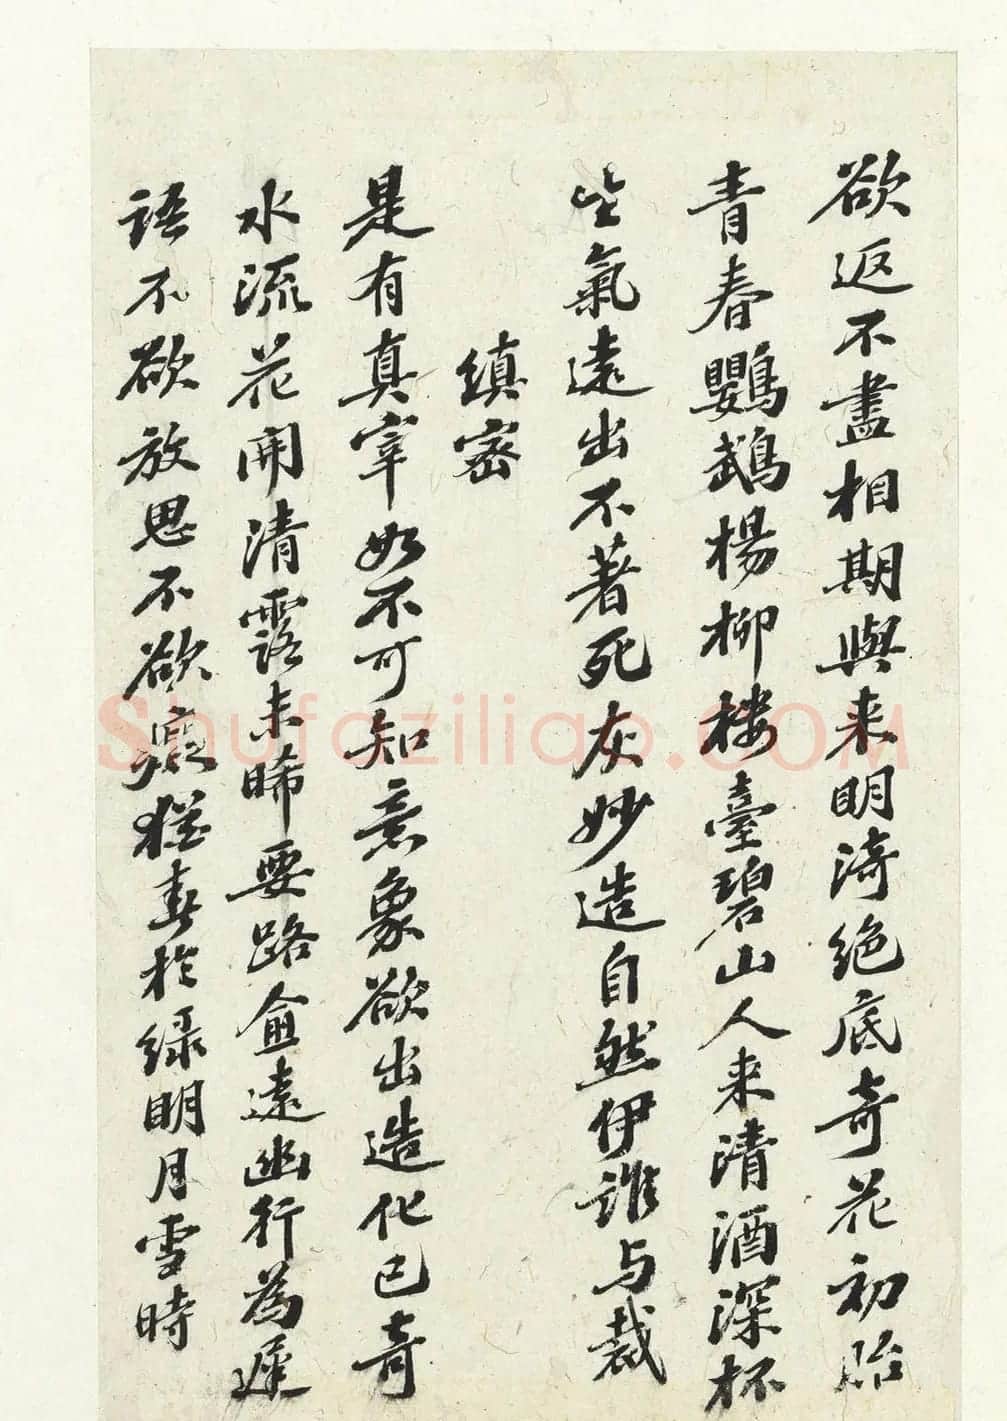 欲返不盡相期與来明漪絶底奇花初胎
青春鸚鵡楊柳樓臺碧山人来清酒深杯
生氣遠出不著死灰妙造自然伊誰与裁
縝密
是有真宰如不可知意象欲出造化已奇
水流花開清露未晞要路愈遠幽行為遲
語不欲放思不欲癡猶春於緑明月雪時
Shufaziliao.COM